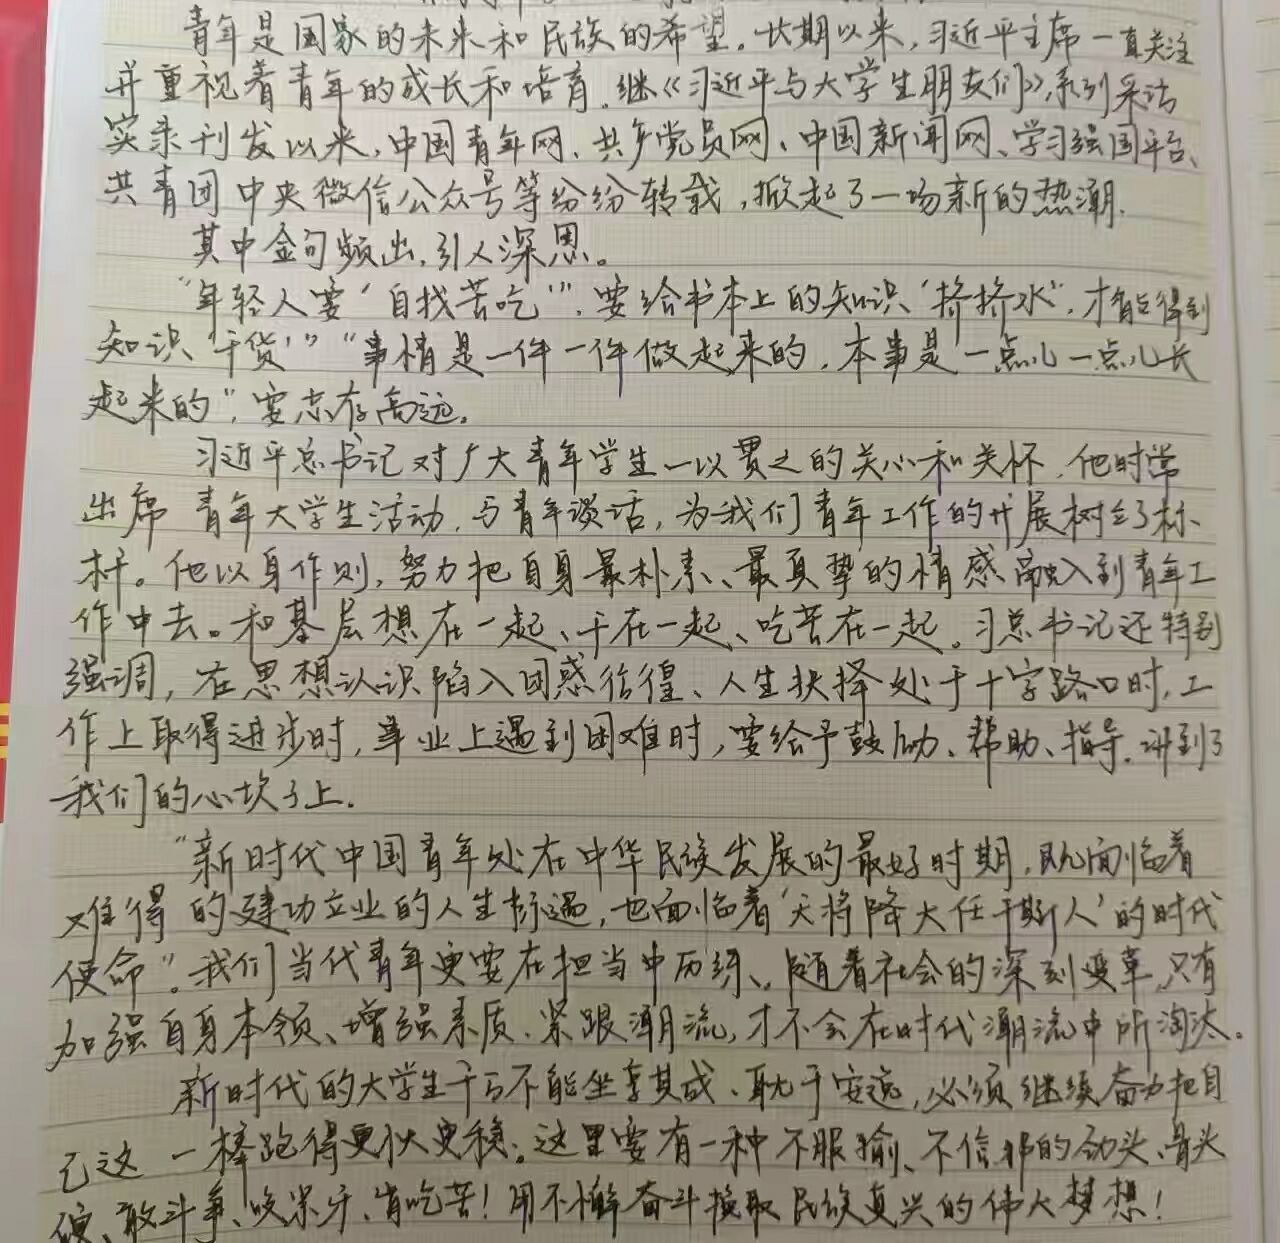 青年是国家的未来和民族的希望。长期以来,习近平主席一直关注
并重视着青年的成长和培育。继《习近平与大学生朋友们》系列采访
实录刊发以来,中国青年网、共产党员网、中国新闻网、学习强国平台、
共青团中央微信公众号等纷纷转载,掀起了一场新的热潮.
其中金句频出,引人深思。
“年轻人要‘自找苦吃’”,要给书本上的知识‘挤挤水’,才能得到
知识‘干货’”“事情是一件一件做起来的,本事是一点儿一点儿长
起来的”,要志存高远。
习近平总书记对广大青年学生一以贯之的关心和关怀,他时常
出席青年大学生活动,与青年谈话,为我们青年工作的开展树立了标
杆。他以身作则,努力把自身最朴素、最真挚的情感融入到青年工
作中去。和基层想在一起、干在一起、吃苦在一起。习总书记还特别
强调,在思想认识陷入困惑彷徨、人生抉择处于十字路口时,工
作上取得进步时,事业上遇到困难时,要给予鼓励、帮助、指导.讲到了
我们的心坎子上.
“新时代中国青年处在中华民族发展的最好时期,既面临着
难得的建功立业的人生际遇,也面临着‘天将降大任于斯人’的时代
使命”。我们当代青年更要在担当中历练、随着社会的深刻变革,只有
加强自身本领、增强素质、紧跟潮流,才不会在时代潮流中所淘汰。
新时代的大学生千万不能坐享其成、耽于安逸,必须继续奋力把自
己这一棒跑得更快更稳。这里要有一种不服输、不信邪的劲头、骨头
硬、敢斗争、咬紧牙、肯吃苦!用不懈奋斗换取民族复兴的伟大梦想!